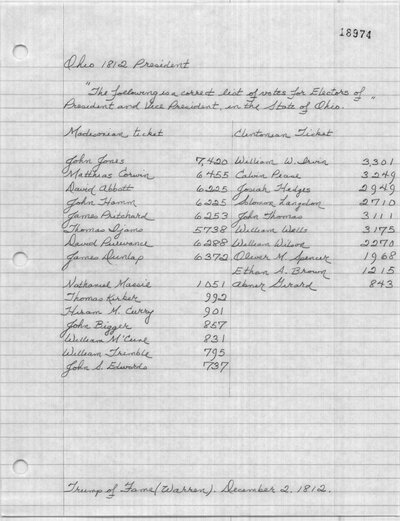 18974
Ohio 1812 President
"The following is a correct list of votes for Electors of
President and Vice President, in the State of Ohio."
Madisonian ticket Clintonian Ticket
John Jones 7,420 William W. Irvin 3,301
Matthias Corwin 6455 Calvin Pease 3249
David Abbott 6225 Josiah Hedges 2949
John Hamm 6225 Solomon Langdon 2710
James Pritchard 6253 John Thomas 3111
Thomas Ijams 5738 William Wells 3175
David Purviance 6288 William Wilson 2270
James Dunlap 6372 Oliver M. Spencer 1968
Ethan S. Brown 1215
Nathaniel Massie 1051 Abner Gerard 843
Thomas Kirker 992
Hiram M. Curry 901
John Bigger 857
William M'Cune 831
William Trimble 795
John S. Edwards 737
Trump of Fame (Warren). December 2, 1812.